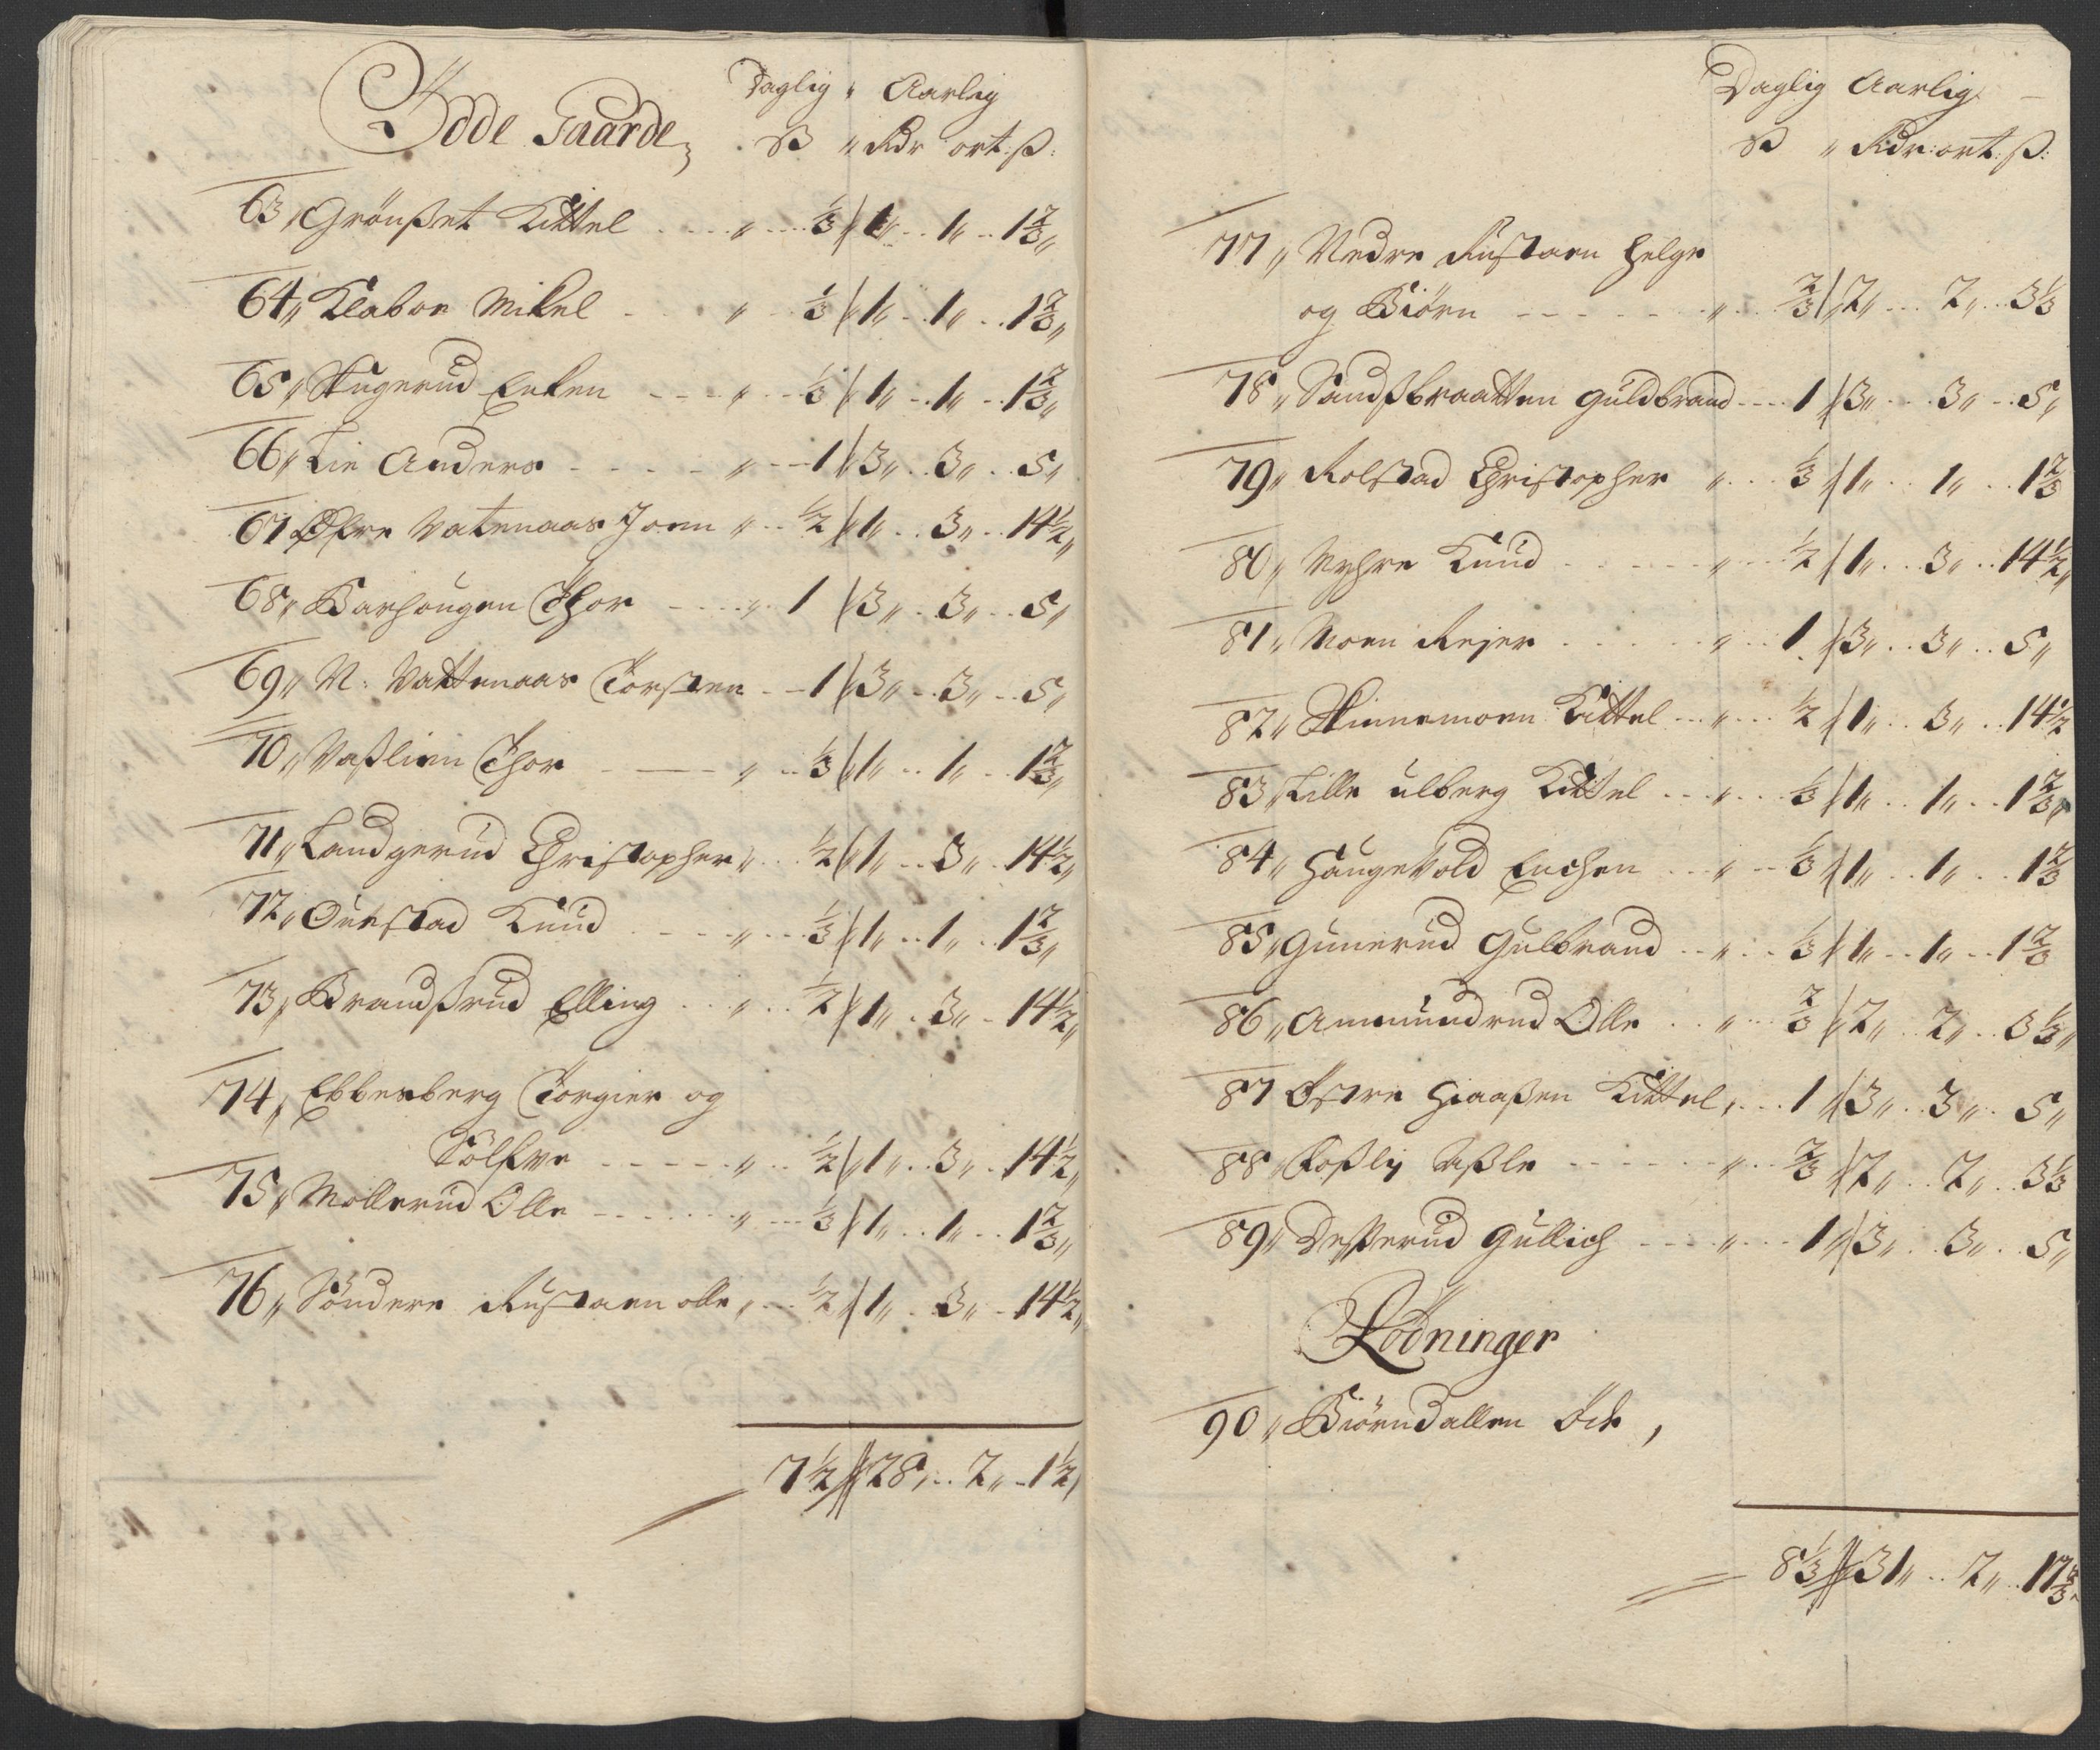 Daglig " Aarlig
Ödde Gaarde, ß " Rdr ort: ß:
63 " Grönßet Kittel " 1/3 // 1 " 1 " 1 2/3 "
64 " Klaboe Mikel " 1/3 // 1 " 1 " 1 2/3 "
65 " Skugerud Enken " 1/3 // 1 " 1 " 1 2/3 "
66 " Lie Anders " 1 // 3 " 3 " 5 "
67 Øfre Vatenaas Joen " 1/2 // 1 " 3 " 14 1/2 "
68 " Barhougen Thor " 1 // 3 " 3 " 5 "
69 " N: Vattenaas Torsten 1 // 3 " 3 " 5 "
70 " Vaßlien Thor " 1/3 // 1 " 1 " 1 2/3 "
71 " Landgerud Christopher " 1/2 // 1 " 3 " 14 1/2 "
72 " Ouestad Knud " 1/3 // 1 " 1 " 1 2/3 "
73 " Brandßrud Elling " 1/2 // 1 " 3 " 14 1/2 "
74 " Ebbesberg Torgier og
Sölfve " 1/2 // 1 " 3 " 14 1/2 "
75 " Mollerud Olle " 1/3 // 1 " 1 " 1 2/3 "
76 " Söndere Rustaen olle " 1/2 // 1 " 3 " 14 1/2 "
7 1/2 // 28 " 2 " 1 1/2
Daglig Aarlig
ß " Rdr: ort: ß:
77 " Nedre Rustaen Helge
og Biörn " 2/3 // 2 " 2 " 3 1/3
78 " Sandßbraatten Guldbrand 1 // 3 " 3 " 5 "
79 " Rolstad Christopher " 1/3 // 1 " 1 " 1 2/3
80 " Myhre Knud " 1/2 // 1 " 3 " 14 1/2 "
81 " Moen Rejer " 1 // 3 " 3 " 5 "
82 " Skinnemoen Kittel " 1/2 // 1 " 3 " 14 1/2
83 " Lille ulberg Kittel " 1/3 // 1 " 1 " 1 2/3 "
84 " Haugevold Enchen " 1/3 // 1 " 1 " 1 2/3
85 " Gunerud Gulbrand " 1/3 // 1 " 1 " 1 2/3
86 " Ammundrud Olle " 2/3 // 2 " 2 " 3 1/3 "
87 Östre Hiaaßen Kittel, 1 // 3 " 3 " 5 "
88 " Foßlij Aßle " 2/3 // 2 " 2 " 3 1/3
89 " Deßerud Gullich " 1 // 3 " 3 " 5 "
Rödninger
90 " Biörndallen Öde,
8 1/3 // 31 " 2 " 17 2/3